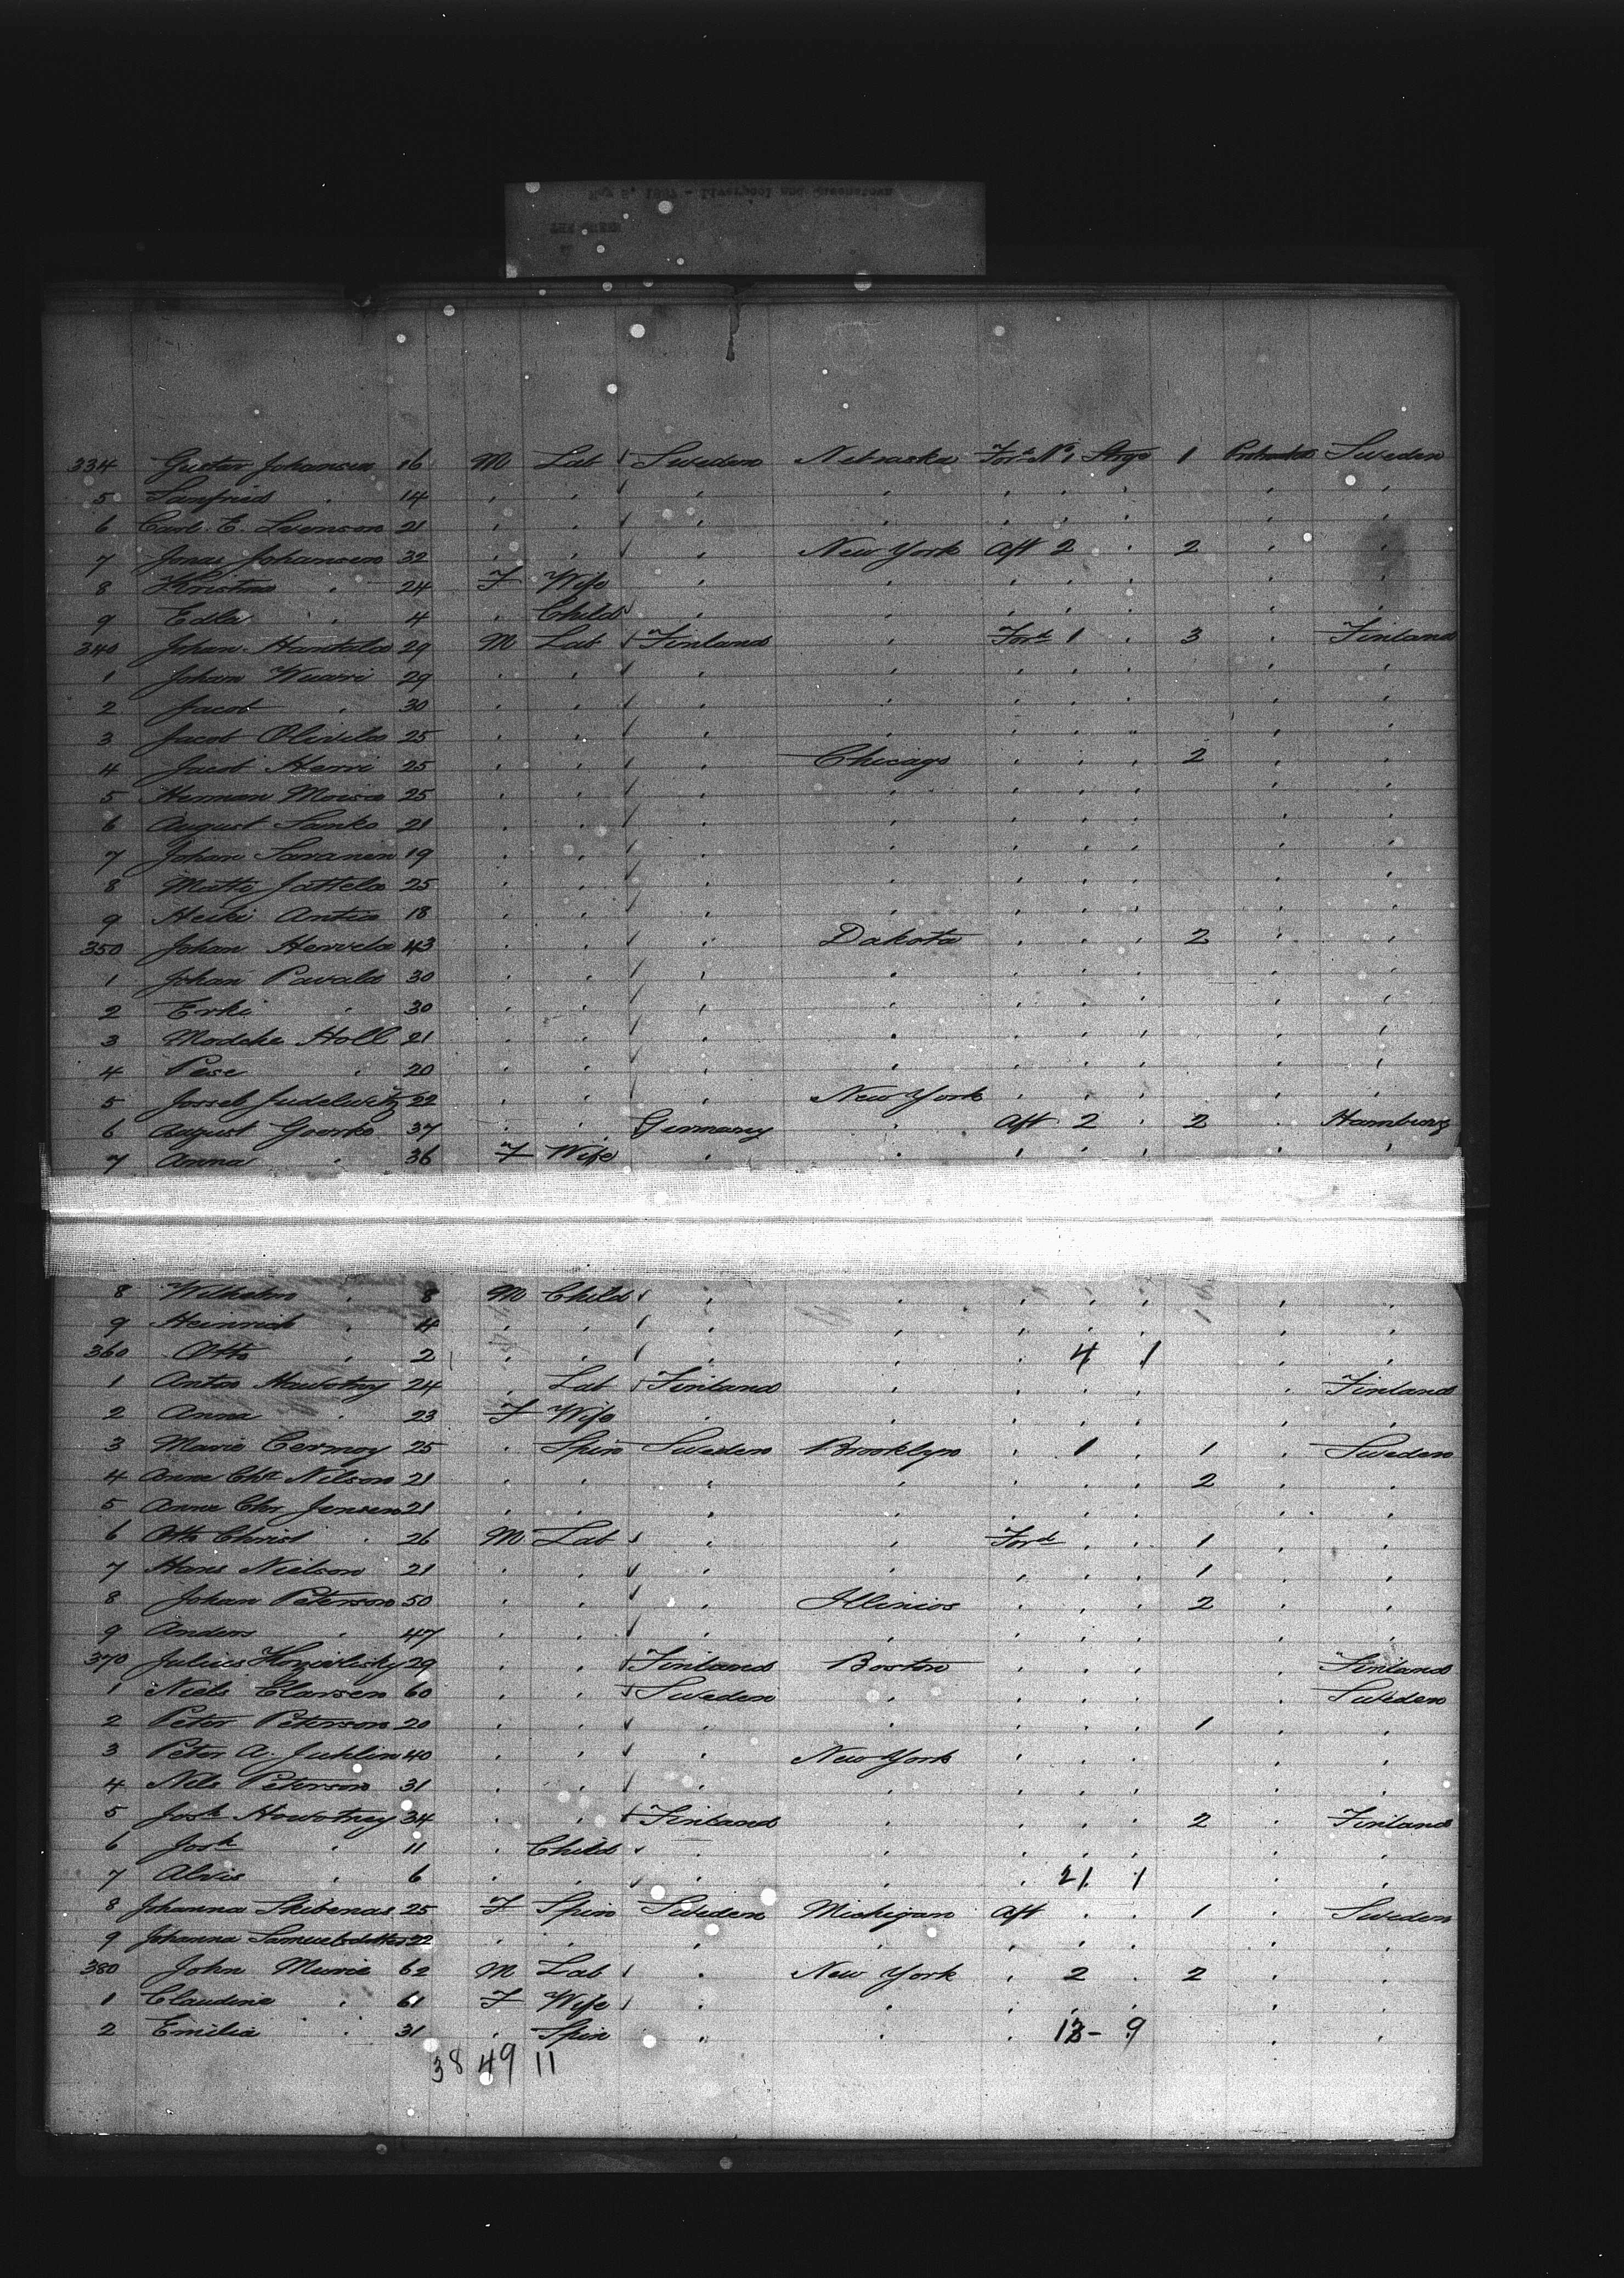 May 5, 1887 - Liverpool and Queenstown
334 Gustav Johansen 16 M Lab Sweden Nebraska Ford No 1 Strge 1 Sweden
5 Sanfried " 14 " " " " " " " " "
6 Carl. E. Svenson 21 " " " " " " " " "
7 Jonas Johansen 32 " " " New York Aft 2 " 2 " "
8 Kristina " 24 F Wife " " " " " " "
9 Edla " 4 " Child " " " " " " "
340 Johan Hantala 29 M Lab Finland " Ford 1 " 3 " Finland
1 Johan Wuorri 29 " " " " " " " " "
2 Jacob " 30 " " " " " " " " "
3 Jacob 25 " " " " " " " " "
4 Jacob Harri 25 " " " Chicago " " " 2 " "
5 Herman Moisa 25 " " " " " " " " "
6 August Samko 21 " " " " " " " " "
7 Johan Saranen 19 " " " " " " " " "
8 Matti Jattela 25 " " " " " " " " "
9 Heiki Antia 18 " " " " " " " " "
350 Johan Hervela 43 " " " Dakota " " " 2 " "
1 Johan Pavala 30 " " " " " " " " "
2 Erki " 30 " " " " " " " " "
3 Modeke Holl 21 " " " " " " " " "
4 Pese " 20 " " " " " " " " "
5 Josseb Judelwitz 22 " " " New York " " " " "
6 August Goorko 37 " " Germany " Aft 2 " 2 " Hamburg
7 Anna " 36 F Wife " " " " " " "
8 Wilhelm " 8 M Child " " " " " " "
9 Heinrich " 4 " " " " " " " " "
360 Otto " 2 " " " " " 4 1 " "
1 Anton Nawotny 24 " Lab Finland " " " " " Finland
2 Anna " 23 F Wife " " " " " " "
3 Marie Cermoy 25 " Spin Sweden Brooklyn " 1 " 1 " Sweden
4 Anna Chr Nilson 21 " " " " " " " 2 " "
5 Anna Chr Jensen 21 " " " " " " " " "
6 Otto Christ " 26 M Lab " " Ford " " 1 " "
7 Hans Nielson 21 " " " " " " " 1 " "
8 Johan Peterson 50 " " " Illinios " " " 2 " "
9 Anders " 47 " " " " " " " " "
370 Julius 29 " " Finland Boston " " " " Finland
1 Niels Clarsen 60 " " Sweden " " " " " Sweden
2 Peter Peterson 20 " " " " " " " 1 " "
3 Peter A. Juhlin 40 " " " New York " " " " "
4 Nels Peterson 31 " " " " " " " " "
5 Josh Nowotney 34 " " Finland " " " " 2 " Finland
6 Josh " 11 " Child " " " " " " "
7 Alvis " 6 " " " " " 21 1 " "
8 Johanna Skibenas 25 F Spin Sweden Michigan Aft " " 1 " Sweden
9 Johanna Samuelsdotter 22 " " " " " " " " "
380 John Murie 62 M Lab " New York " 2 " 2 " "
1 Claudine " 61 F Wife " " " " " " "
2 Emilia " 31 " Spin " " " 13 - 9 " "
38 49 11